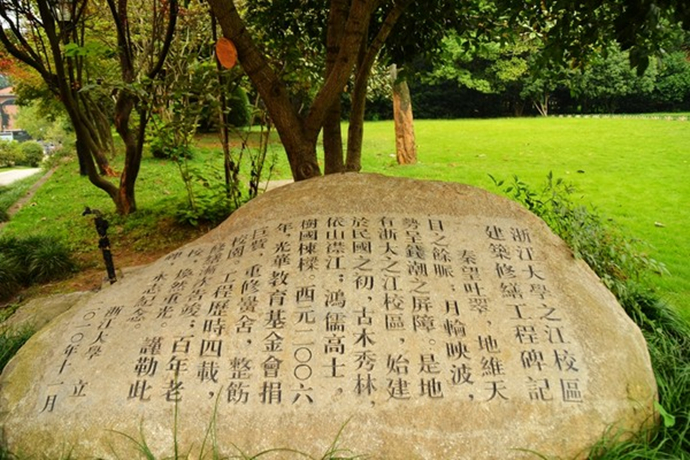 浙江大學之江校區
建築修繕工程碑記
秦望吐翠，地維天
目之餘脈；月輪映波，
勢呈錢潮之屏障。是地
有浙大之江校區，始建
於民國之初，古木秀林，
依山襟江；鴻儒高士，
樹國棟樑。酉元二〇〇六
年，光華教育基金會捐
巨資，重修黌舍，整飭
校園。工程歷時四載，
修繕漸次告竣；百年老
校，煥然重光。謹勒此
碑，永志紀念。
浙江大學 立
二〇一〇年十一月